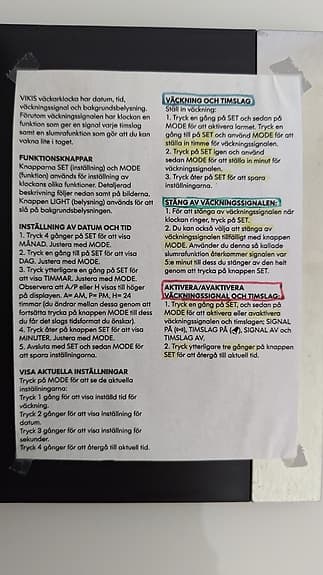 VIKIS väckarklocka har datum, tid,
väckningssignal och bakgrundsbelysning.
Förutom väckningssignalen har klockan en
funktion som ger en signal varje timslag
samt en slumrafunktion som gör att du kan
vakna lite i taget.
FUNKTIONSKNAPPAR
Knapparna SET (inställning) och MODE
(funktion) används för inställning av
klockans olika funktioner. Detaljerad
beskrivning följer nedan samt på bilderna.
Knappen LIGHT (belysning) används för att
slå på bakgrundsbelysningen.
INSTÄLLNING AV DATUM OCH TID
1. Tryck 4 gånger på SET för att visa
MÅNAD. Justera med MODE.
2. Tryck en gång till på SET för att visa
DAG. Justera med MODE.
3. Tryck ytterligare en gång på SET för
att visa TIMMAR. Justera med MODE.
Observera att A/P eller H visas till höger
på displayen. A= AM, P= PM, H= 24
timmar (du ändrar mellan dessa genom att
fortsätta trycka på knappen MODE till dess
du får det slags tidsformat du önskar).
4. Tryck åter på knappen SET för att visa
MINUTER. Justera med MODE.
5. Avsluta med SET och sedan MODE för
att spara inställningarna.
VISA AKTUELLA INSTÄLLNINGAR
Tryck på MODE för att se de aktuella
inställningarna:
Tryck 1 gång för att visa inställd tid för
väckning.
Tryck 2 gånger för att visa inställning för
datum.
Tryck 3 gånger för att visa inställning för
sekunder.
Tryck 4 gånger för att återgå till aktuell tid.
VÄCKNING OCH TIMSLAG
Ställ in väckning:
1. Tryck en gång på SET och sedan på
MODE för att aktivera larmet. Tryck en
gång till på SET och använd MODE för att
ställa in timme för väckningssignalen.
2. Tryck på SET igen och använd
sedan MODE för att ställa in minut för
väckningssignalen.
3. Tryck åter på SET för att spara
inställningarna.
STÄNG AV VÄCKNINGSSIGNALEN:
1. För att stänga av väckningssignalen när
klockan ringer, tryck på SET.
2. Du kan också välja att stänga av
väckningssignalen tillfälligt med knappen
MODE. Använder du denna så kallade
slumrafunktion återkommer signalen var
5:e minut till dess du stänger av den helt
genom att trycka på knappen SET.
AKTIVERA/AVAKTIVERA
VÄCKNINGSSIGNAL OCH TIMSLAG:
1. Tryck en gång på SET, och sedan på
MODE för att aktivera eller avaktivera
väckningssignalen och timslagen; SIGNAL
PÅ, TIMSLAG PÅ, SIGNAL AV och
TIMSLAG AV.
2. Tryck ytterligare tre gånger på knappen
SET för att återgå till aktuell tid.